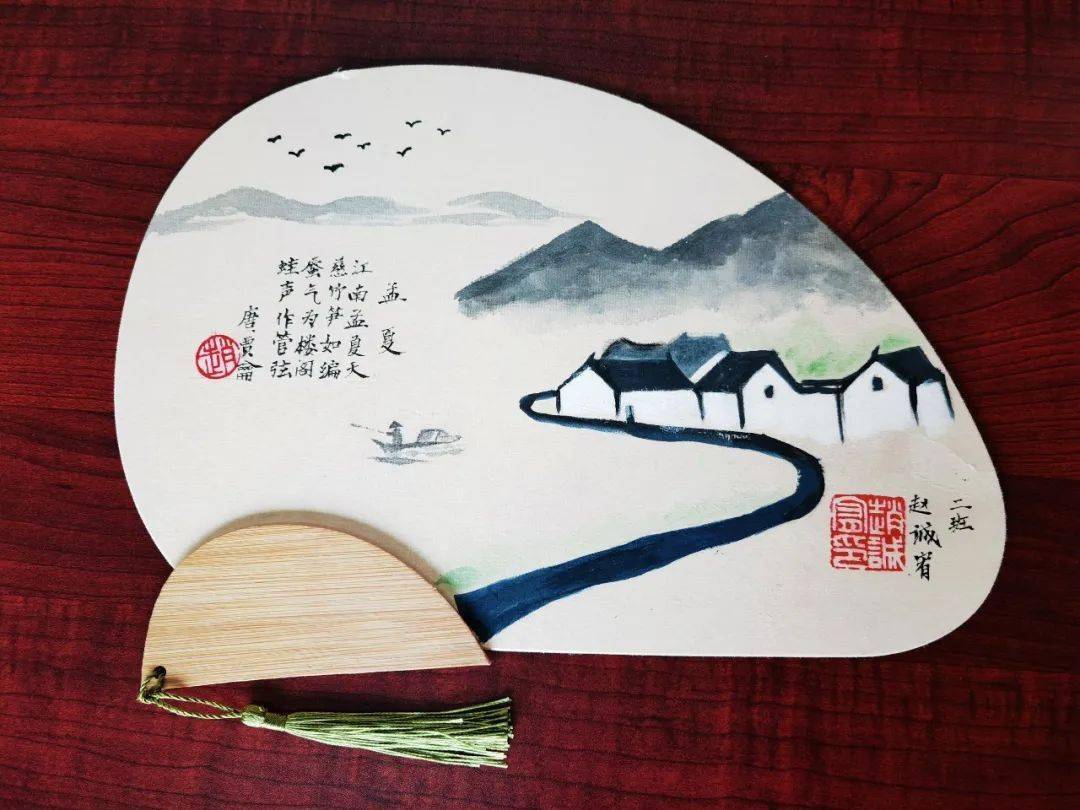 孟夏
江南孟夏天
慈竹笋如编
蜃气为楼阁
蛙声作管弦
唐·贾
趙
二班
赵诚
趙誠印